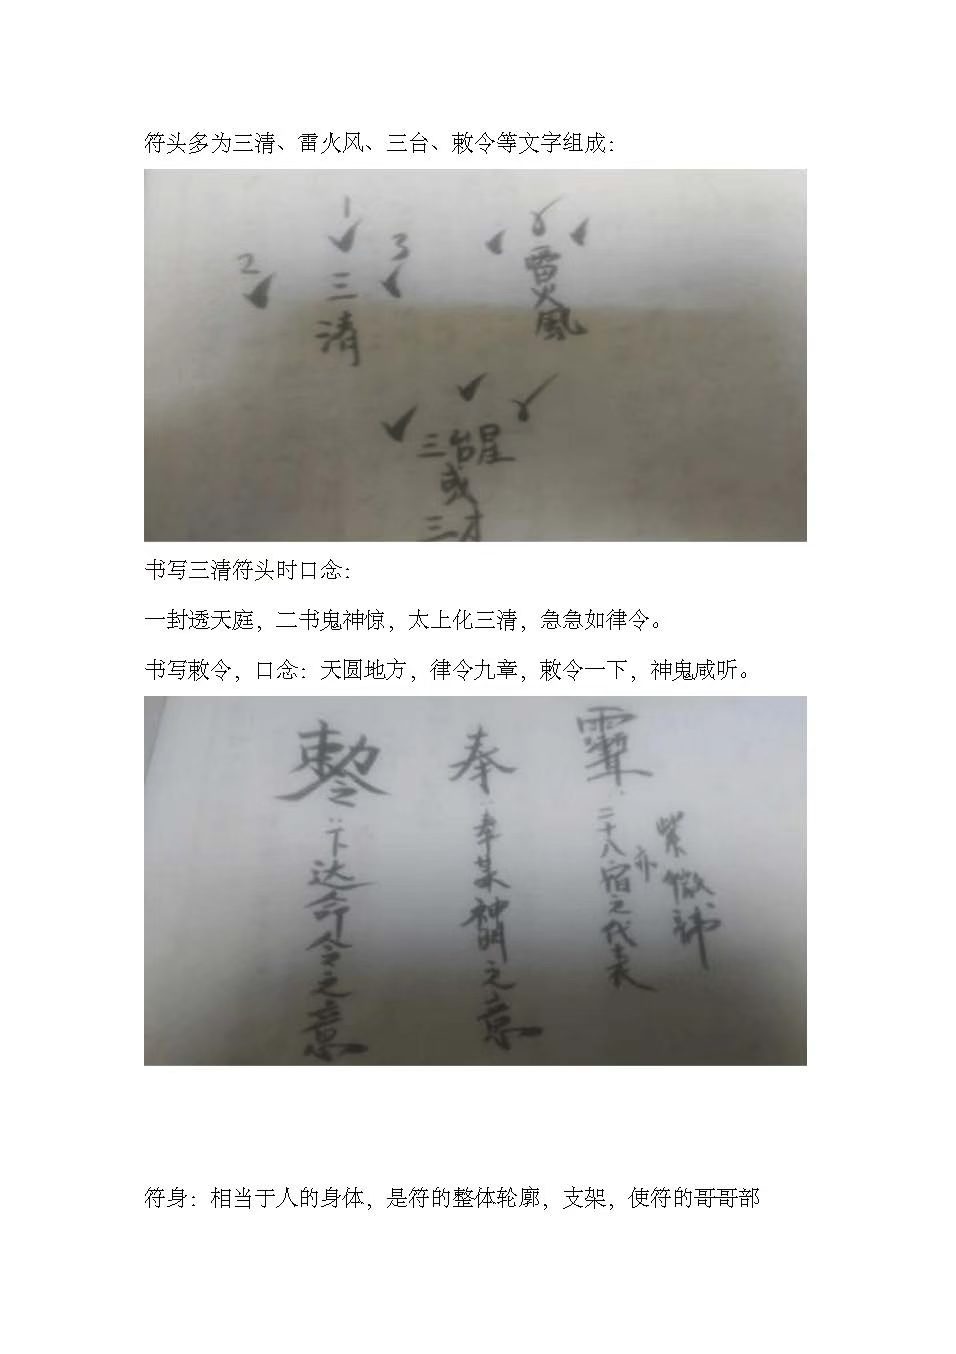 符头多为三清、雷火风、三台、敕令等文字组成：
1
2
3
三清
雷火風
三台星
或
三才
书写三清符头时口念：
一封透天庭，二书鬼神惊，太上化三清，急急如律令。
书写敕令，口念：天圆地方，律令九章，敕令一下，神鬼咸听。
：下达命令之意
奉
：奉某神明之意
：二十八宿之代表
亦
紫微諱
符身：相当于人的身体，是符的整体轮廓，支架，使符的哥哥部